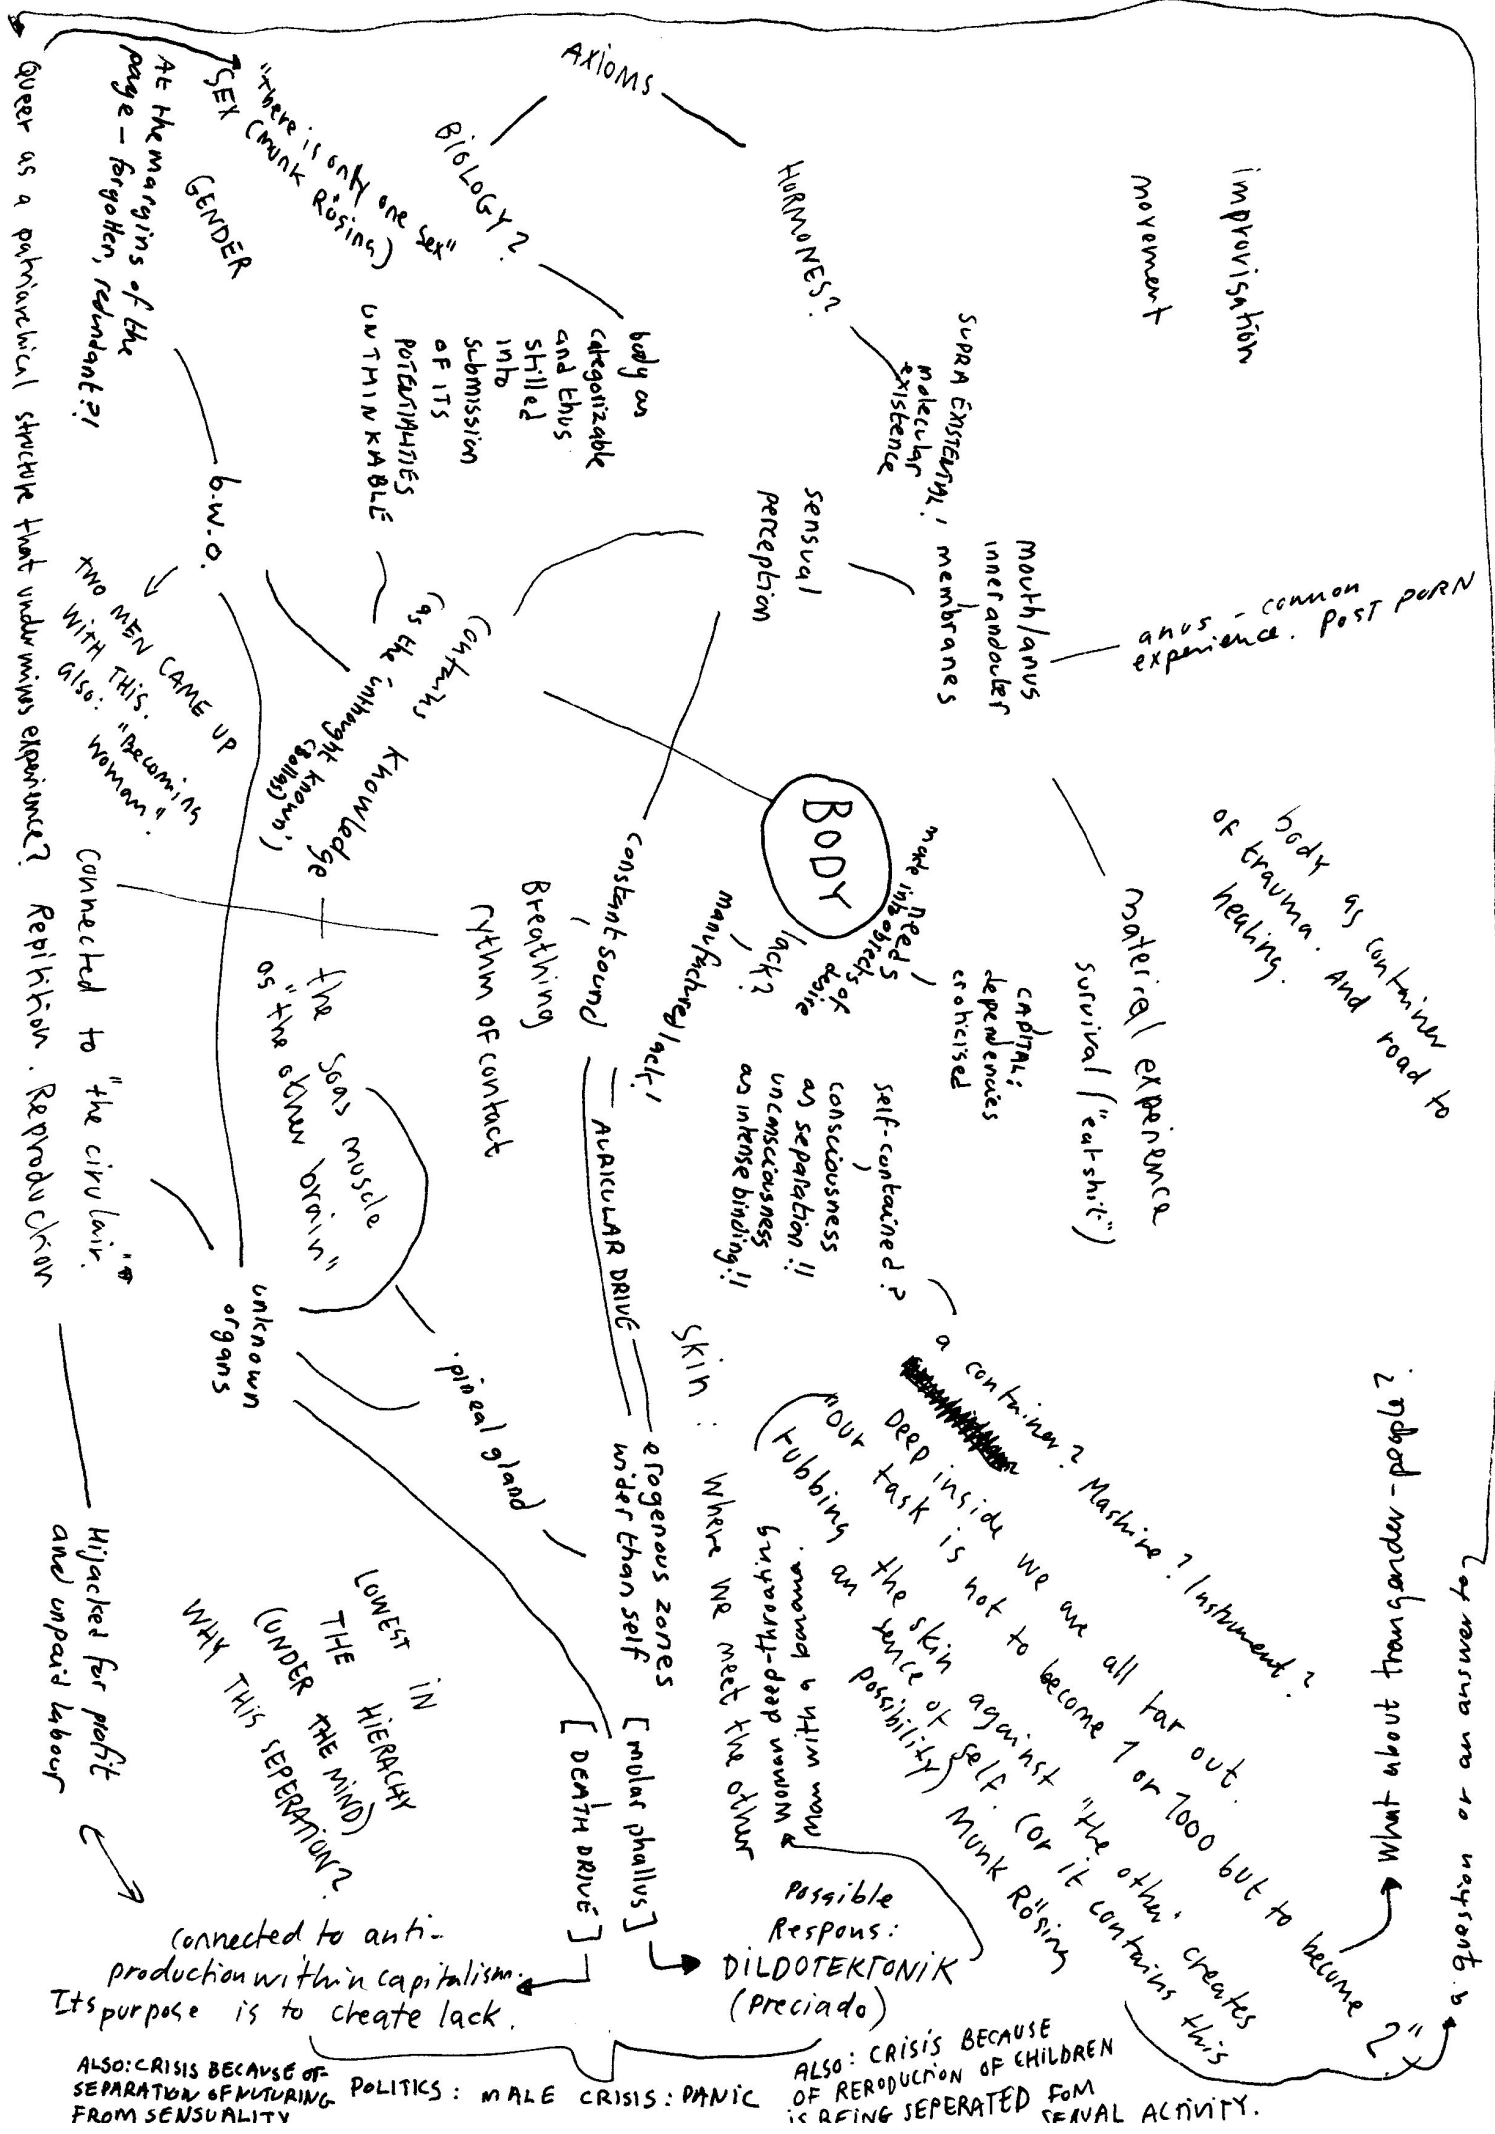 AXIOMS
BIOLOGY?
HORMONES?
improvisation
movement
"There is only one sex"
(Munk Rösing)
SEX
GENDER
At the margins of the
page – forgotten, redundant?!
Queer as a patriarchical structure that undermines experience? Repitition. Reproduction
body as
categorizable
and thus
stilled
into
submission
OF ITS
POTENTIALITIES
UNTHINKABLE
SUPRA EXISTENTIAL,
molecular
existence
sensual
perception
mouth/anus
inner and outer
membranes
anus - common
experience. POST PORN
b.w.o.
TWO MEN CAME UP
WITH THIS.
also: "Becoming
woman".
Contains Knowledge
(as the 'unthought known'
(Bollas))
BODY
needs
made into objects of
desire
lack?
manufactures lack!
CAPITAL:
dependencies
eroticised
material experience
survival ("eat shit")
body as container
of trauma. And road to
healing.
constant sound
Breathing
rythm of contact
Connected to "the cirulair."
the soas muscle
as "the other brain"
unknown
organs
pineal gland
AURICULAR DRIVE
erogenous zones
wider than self
self-contained?
consciousness
as separation!!
unconsciousness
as intense binding!!
a container? Mashine? Instrument?
"Deep inside we are all far out.
Our task is not to become 1 or 1000 but to become 2"
Munk Rösing
(rubbing the skin against "the other" creates
an sence of self. (or it contains this
possibility)
Skin: Where we meet the other
woman deep-throating
man with a banana.
What about trangender-people?
a question to an answer to?
Hijacked for profit
and unpaid labour
LOWEST IN
THE HIERACHY
(UNDER THE MIND)
WHY THIS SEPERATION?
[molar phallus]
[DEATH DRIVE]
Possible
Respons:
DILDOTEKTONIK
(Preciado)
connected to anti-
production within capitalism.
Its purpose is to create lack.
POLITICS: MALE CRISIS: PANIC
ALSO: CRISIS BECAUSE OF
SEPARATION OF NUTURING
FROM SENSUALITY
ALSO: CRISIS BECAUSE
OF RERODUCTION OF CHILDREN
IS BEING SEPERATED FOM
SEXUAL ACTIVITY.